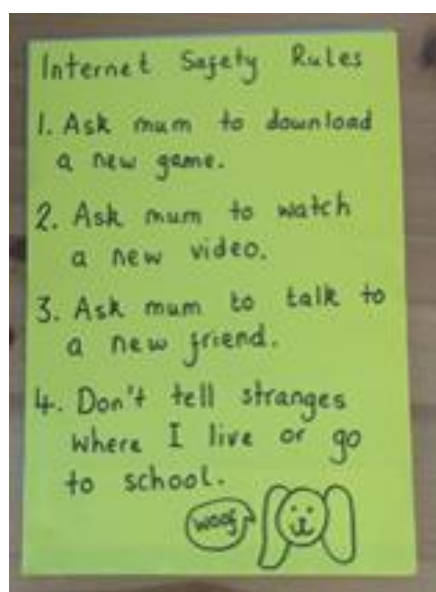 Internet Safety Rules
1. Ask mum to download
a new game.
2. Ask mum to watch
a new video.
3. Ask mum to talk to
a new friend.
4. Don't tell stranges
where I live or go
to school.
woof